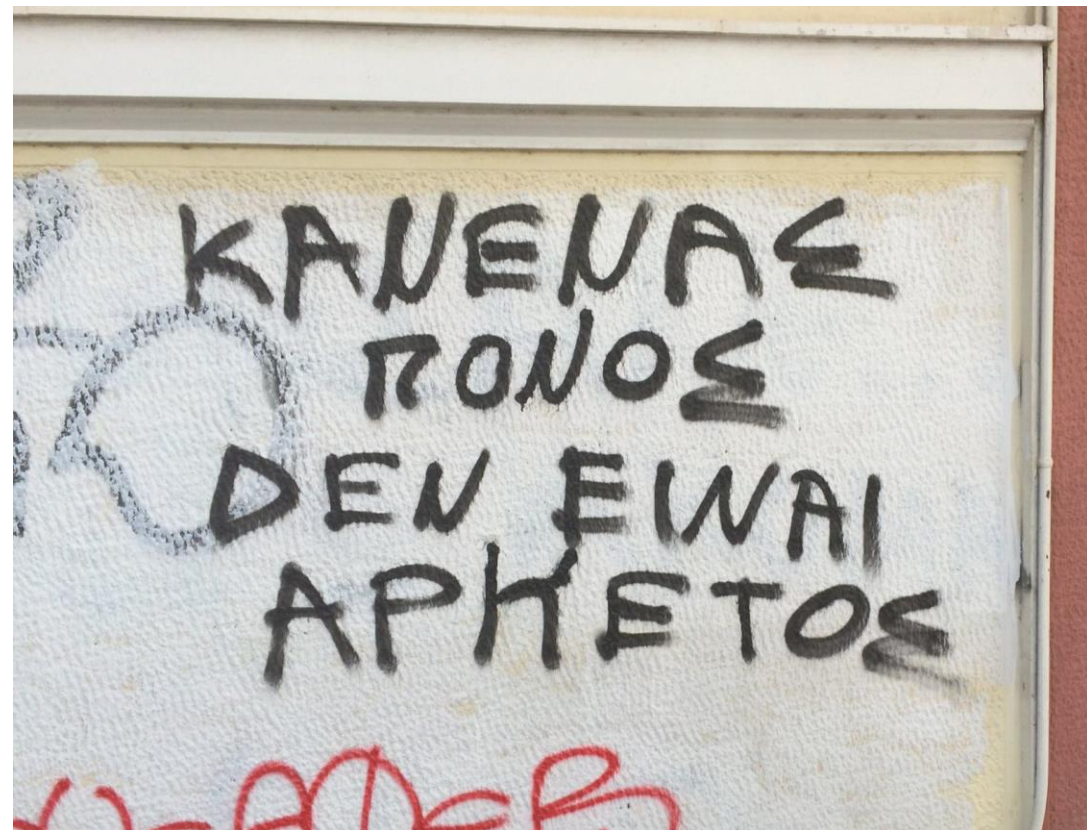 ΚΑΝΕΝΑΣ
ΠΟΝΟΣ
DEN ΕΙΝΑΙ
ΑΡΚΕΤΟΣ